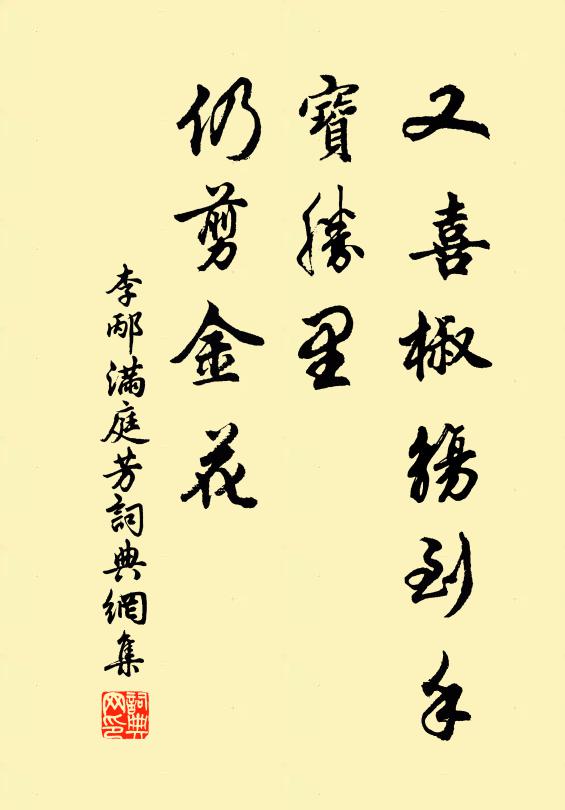 又喜椒觴到手
寶勝里
仍剪金花
李邴滿庭芳詞典網集
詞典网印